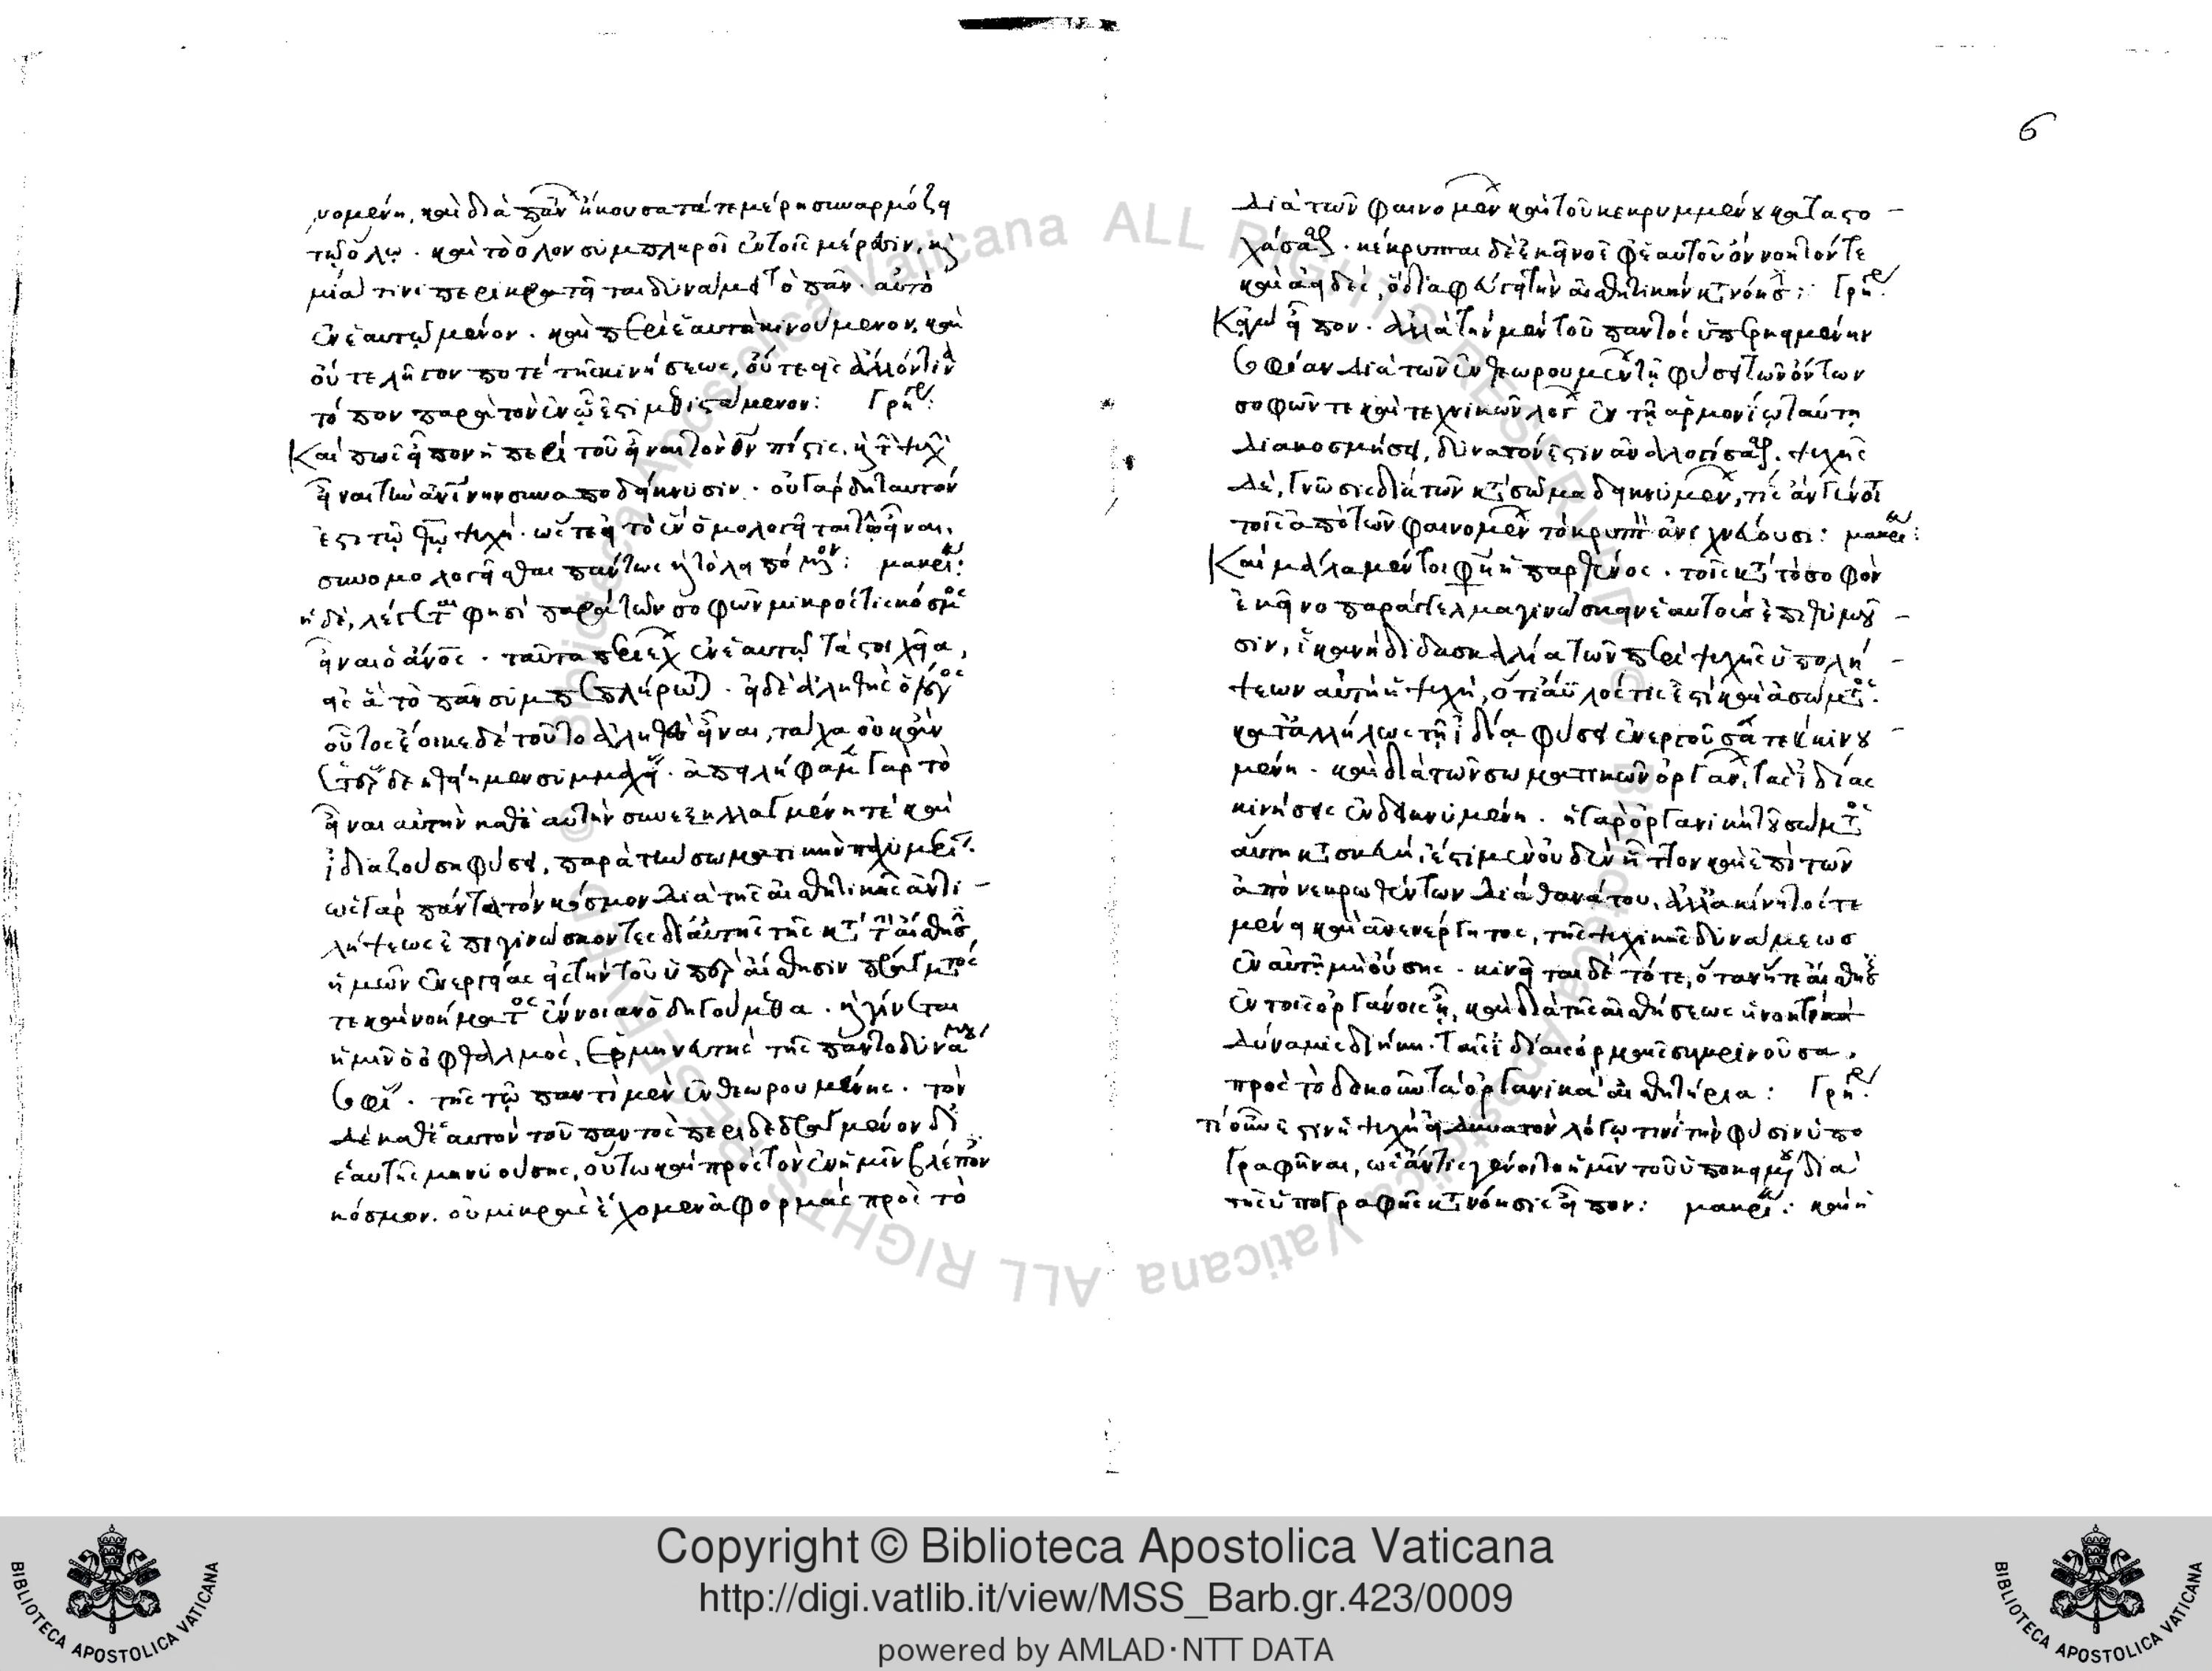 νομένη, καὶ διὰ πάντων ἥκουσα τά τε μέρη συναρμόζει
τῷ ὅλῳ. καὶ τὸ ὅλον συμπληροῖ ἐν τοῖς μέρεσιν, καὶ
μιᾷ τινι περικρατεῖται δυνάμει τὸ πᾶν. αὐτὸ
ἐν ἑαυτῷ μένον. καὶ περὶ ἑαυτὸ κινούμενον, καὶ
οὔτε λῆγον ποτὲ τῆς κινήσεως, οὔτε εἰς ἄλλόν τινα
τόπον παρὰ τὸν ἐν ᾧ ἐστι μεθιστάμενον: Γρη:
Καὶ πῶς εἶπον ἡ περὶ τοῦ εἶναι τὸν θν πίστις, καὶ τὴν ψυχὴν
εἶναι τὴν ἀνίνην συναποδείκνυσιν. οὐ γὰρ δὴ ταυτόν
ἐστι τῷ θῷ ἡ ψυχή. ὥστε εἰ τὸ ἓν ὁμολογεῖται εἶναι,
συνομολογεῖσθαι πάντως καὶ τὸ λειπόμενον: μακρι:
ἡ δὲ, λέγεται φησὶ παρὰ τῶν σοφῶν μικρός τις κόσμος
εἶναι ὁ ἄνος. ταῦτα περιέχων ἐν ἑαυτῷ τὰ στοιχεῖα,
οἷς τὸ πᾶν συμπεπλήρωται. εἰ δὲ ἀληθὴς ὁ λόγος
οὗτος ἔοικε δὲ τοῦτο ἀληθὲς εἶναι, τάχα οὐκ ἂν
ἑτέρας δεηθείημεν συμμαχίας
εἶναι αὐτὴν καθ' ἑαυτὴν ἐν ἐξηλλαγμένῃ τε καὶ
ἰδιαζούσῃ φύσει, παρὰ τὴν σωματικὴν παχυμέρειαν.
ὡς γὰρ πάντα τὸν κόσμον διὰ τῆς αἰσθητικῆς ἀντι-
λήψεως ἐπιγινώσκοντες δι' αὐτῆς τῆς κατὰ τὴν αἴσθησιν
ἡμῶν ἐνεργείας εἰς τὴν τοῦ ὑπὲρ αἴσθησιν πράγματος
τε καὶ νοήματος ἔννοιαν ὁδηγούμεθα. καὶ γίνεται
ἡμῖν ὁ ὀφθαλμὸς, ἑρμηνευτὴς τῆς παντοδυνάμου
σοφίας. τῆς τῷ παντὶ μὲν ἐνθεωρουμένης. τὸν
δὲ καθ' ἑαυτὸν τοῦ παντὸς περιδεδραγμένον δι'
ἑαυτῆς μηνυούσης, οὕτω καὶ πρὸς τὸν ἐν ἡμῖν βλέποντες
κόσμον. οὐ μικρὰς ἔχομεν ἀφορμὰς πρὸς τὸ
6
διὰ τῶν φαινομένων καὶ τοῦ κεκρυμμένου καταστο-
χάσασθαι. κέκρυπται δὲ ἐκεῖνο ὃ ἐφ' ἑαυτοῦ ὂν νοητόν τε
καὶ ἀειδὲς, ὃ διαφεύγει τὴν αἰσθητικὴν κατανόησιν: Γρη:
Κἀγὼ εἶπον. ἀλλὰ τὴν μὲν τοῦ παντὸς ὑπερκειμένην
σοφίαν διὰ τῶν ἐνθεωρουμένων τῇ φύσει τῶν ὄντων
σοφῶν τε καὶ τεχνικῶν λόγων ἐν τῇ ἁρμονίῳ ταύτῃ
διακοσμήσει, δυνατόν ἐστιν ἀναλογίσασθαι. ψυχῆς
δὲ, γνῶσις διὰ τῶν κατὰ σῶμα δεικνυμένων, τίς ἂν γένοιτο
τοῖς ἀπὸ τῶν φαινομένων τὸ κρυπτὸν ἀνιχνεύουσι: μακρι:
Καὶ μάλα μέντοι φησὶν ἡ παρθένος. τοῖς κατὰ τὸ σοφὸν
ἐκεῖνο παράγγελμα γινώσκειν ἑαυτοὺς ἐπιθυμοῦ-
σιν, ἱκανὴ διδασκαλία τῶν περὶ ψυχῆς ὑπολή-
ψεων αὐτὴ ἡ ψυχή, ὅτι ἄϋλός τις ἐστὶ καὶ ἀσώματος.
καταλλήλως τῇ ἰδίᾳ φύσει ἐνεργοῦσά τε καὶ κινου-
μένη. καὶ διὰ τῶν σωματικῶν ὀργάνων, τὰς ἰδίας
κινήσεις ἐνδεικνυμένη. ἡ γὰρ ὀργανικὴ τοῦ σώματος
αὕτη κατασκευή, ἔστι μὲν οὐδὲν ἧττον καὶ ἐπὶ τῶν
ἀπονεκρωθέντων διὰ θανάτου. ἀλλ' ἀκίνητός τε
μένει καὶ ἀνενέργητος, τῆς ψυχικῆς δυνάμεως
ἐν αὐτῇ μὴ οὔσης. κινεῖται δὲ τότε, ὅταν ἥτε αἴσθησις
ἐν τοῖς ὀργάνοις ᾖ, καὶ διὰ τῆς αἰσθήσεως ἡ νοητικὴ
δύναμις διήκῃ. ταῖς ἰδίαις ὁρμαῖς συγκινοῦσα,
πρὸς τὸ δοκοῦν τὰ ὀργανικὰ αἰσθητήρια: Γρη:
τί οὖν ἐστιν ἡ ψυχὴ εἰ δυνατὸν λόγῳ τινὶ τὴν φύσιν ὑπο
γραφῆναι, ὡς ἄν τις γένοιτο ἡμῖν τοῦ ὑποκειμένου διὰ
τῆς ὑπογραφῆς κατανόησις εἶπον: μακρι: καὶ ἡ
Copyright © Biblioteca Apostolica Vaticana
http://digi.vatlib.it/view/MSS_Barb.gr.423/0009
powered by AMLAD·NTT DATA
BIBLIOTECA APOSTOLICA VATICANA
BIBLIOTECA APOSTOLICA VATICANA